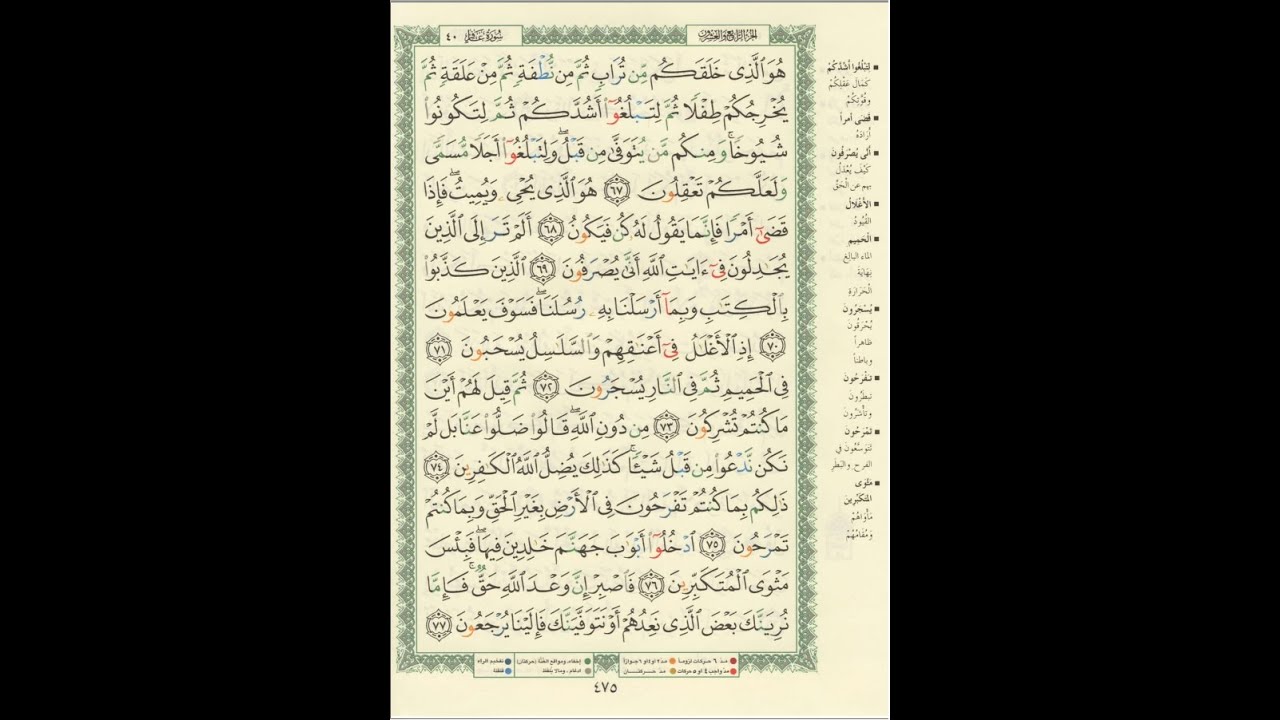 سُورَةُ غَافِرٍ ٤٠
الجزء الرابع والعشرون
هُوَ ٱلَّذِى خَلَقَكُم مِّن تُرَابٍ ثُمَّ مِن نُّطْفَةٍ ثُمَّ مِنْ عَلَقَةٍ ثُمَّ
يُخْرِجُكُمْ طِفْلًا ثُمَّ لِتَبْلُغُوٓا۟ أَشُدَّكُمْ ثُمَّ لِتَكُونُوا۟
شُيُوخًا ۚ وَمِنكُم مَّن يُتَوَفَّىٰ مِن قَبْلُ ۖ وَلِتَبْلُغُوٓا۟ أَجَلًا مُّسَمًّى
وَلَعَلَّكُمْ تَعْقِلُونَ ٦٧ هُوَ ٱلَّذِى يُحْىِۦ وَيُمِيتُ ۖ فَإِذَا
قَضَىٰٓ أَمْرًا فَإِنَّمَا يَقُولُ لَهُۥ كُن فَيَكُونُ ٦٨ أَلَمْ تَرَ إِلَى ٱلَّذِينَ
يُجَٰدِلُونَ فِىٓ ءَايَٰتِ ٱللَّهِ أَنَّىٰ يُصْرَفُونَ ٦٩ ٱلَّذِينَ كَذَّبُوا۟
بِٱلْكِتَٰبِ وَبِمَآ أَرْسَلْنَا بِهِۦ رُسُلَنَا ۖ فَسَوْفَ يَعْلَمُونَ
٧٠ إِذِ ٱلْأَغْلَٰلُ فِىٓ أَعْنَٰقِهِمْ وَٱلسَّلَٰسِلُ يُسْحَبُونَ ٧١
فِى ٱلْحَمِيمِ ثُمَّ فِى ٱلنَّارِ يُسْجَرُونَ ٧٢ ثُمَّ قِيلَ لَهُمْ أَيْنَ
مَا كُنتُمْ تُشْرِكُونَ ٧٣ مِن دُونِ ٱللَّهِ ۖ قَالُوا۟ ضَلُّوا۟ عَنَّا بَل لَّمْ
نَكُن نَّدْعُوا۟ مِن قَبْلُ شَيْـًٔا ۚ كَذَٰلِكَ يُضِلُّ ٱللَّهُ ٱلْكَٰفِرِينَ ٧٤
ذَٰلِكُم بِمَا كُنتُمْ تَفْرَحُونَ فِى ٱلْأَرْضِ بِغَيْرِ ٱلْحَقِّ وَبِمَا كُنتُمْ
تَمْرَحُونَ ٧٥ ٱدْخُلُوٓا۟ أَبْوَٰبَ جَهَنَّمَ خَٰلِدِينَ فِيهَا ۖ فَبِئْسَ
مَثْوَى ٱلْمُتَكَبِّرِينَ ٧٦ فَٱصْبِرْ إِنَّ وَعْدَ ٱللَّهِ حَقٌّ ۚ فَإِمَّا
نُرِيَنَّكَ بَعْضَ ٱلَّذِى نَعِدُهُمْ أَوْ نَتَوَفَّيَنَّكَ فَإِلَيْنَا يُرْجَعُونَ ٧٧
■ لِتَبْلُغُوا أَشُدَّكُمْ
كَمَالَ عَقْلِكُمْ
وَقُوَّتِكُمْ
■ قَضَى أمراً
أَرَادَهُ
■ أنّى يُصْرَفُونَ
كَيْفَ يُعْدَلُ
بهم عن الْحَقّ
■ الأغْلَالُ
القُيُودُ
■ الْحَمِيمِ
الماء البالِغِ
نِهَايَة
الْحَرَارَةِ
■ يُسْجَرُونَ
يُحْرَقُونَ
ظاهراً
وباطناً
■ تَفْرَحُونَ
تبطَرُونَ
وتأشَرُونَ
■ تَمْرَحُونَ
تَتَوَسَّعُونَ فِي
الفرح والبَطَر
■ مَثْوَى
المتكبّرين
مَأْوَاهُمْ
وَمُقَامُهُمْ
مدّ ٦ حركات لزوماً مدّ ٢ أو ٤ أو ٦ جوازاً إخفاء، ومواقع الغُنَّة (حركتان) تفخيم الراء
مدّ واجب ٤ أو ٥ حركات مدّ حركتان ادغام، وما لا يُلفَظ قلقلة
٤٧٥